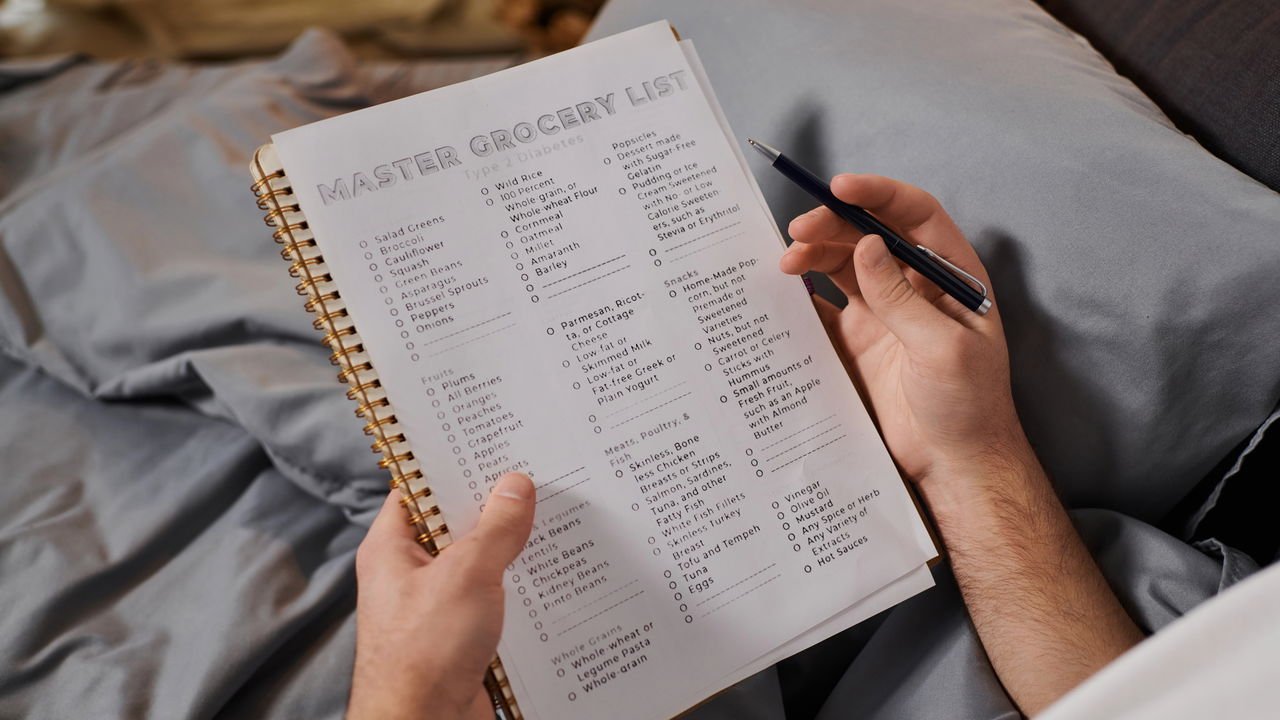 MASTER GROCERY LIST
Type 2 Diabetes
Salad Greens
Broccoli
Cauliflower
Squash
Green Beans
Asparagus
Brussel Sprouts
Peppers
Onions
Fruits
Plums
All Berries
Oranges
Peaches
Tomatoes
Grapefruit
Apples
Pears
Apricots
& Legumes
Black Beans
Lentils
White Beans
Chickpeas
Kidney Beans
Pinto Beans
Whole Grains
Whole-wheat or
Legume Pasta
Whole-grain
Wild Rice
100 Percent
Whole-grain, or
Whole-wheat Flour
Cornmeal
Oatmeal
Millet
Amaranth
Barley
Parmesan, Ricot-
ta, or Cottage
Cheese
Low fat or
Skimmed Milk
Low-fat or
Fat-free Greek or
Plain Yogurt
Meats, Poultry, &
Fish
Skinless, Bone
less Chicken
Breasts or Strips
Salmon, Sardines,
Tuna, and other
Fatty Fish
White Fish Fillets
Skinless Turkey
Breast
Tofu and Tempeh
Tuna
Eggs
Popsicles
Dessert made
with Sugar-Free
Gelatin
Pudding or Ice
Cream Sweetened
with No- or Low
Calorie Sweeten-
ers, such as
Stevia or Erythritol
Snacks
Home-Made Pop-
corn, but not
Premade or
Sweetened
Varieties
Nuts, but not
Sweetened
Carrot or Celery
Sticks with
Hummus
Small amounts of
Fresh Fruit,
such as an Apple
with Almond
Butter
Vinegar
Olive Oil
Mustard
Any Spice or Herb
Any Variety of
Extracts
Hot Sauces